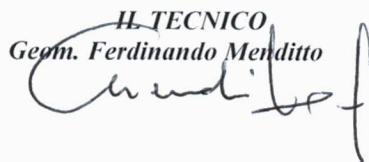 IL TECNICO
Geom. Ferdinando Menditto